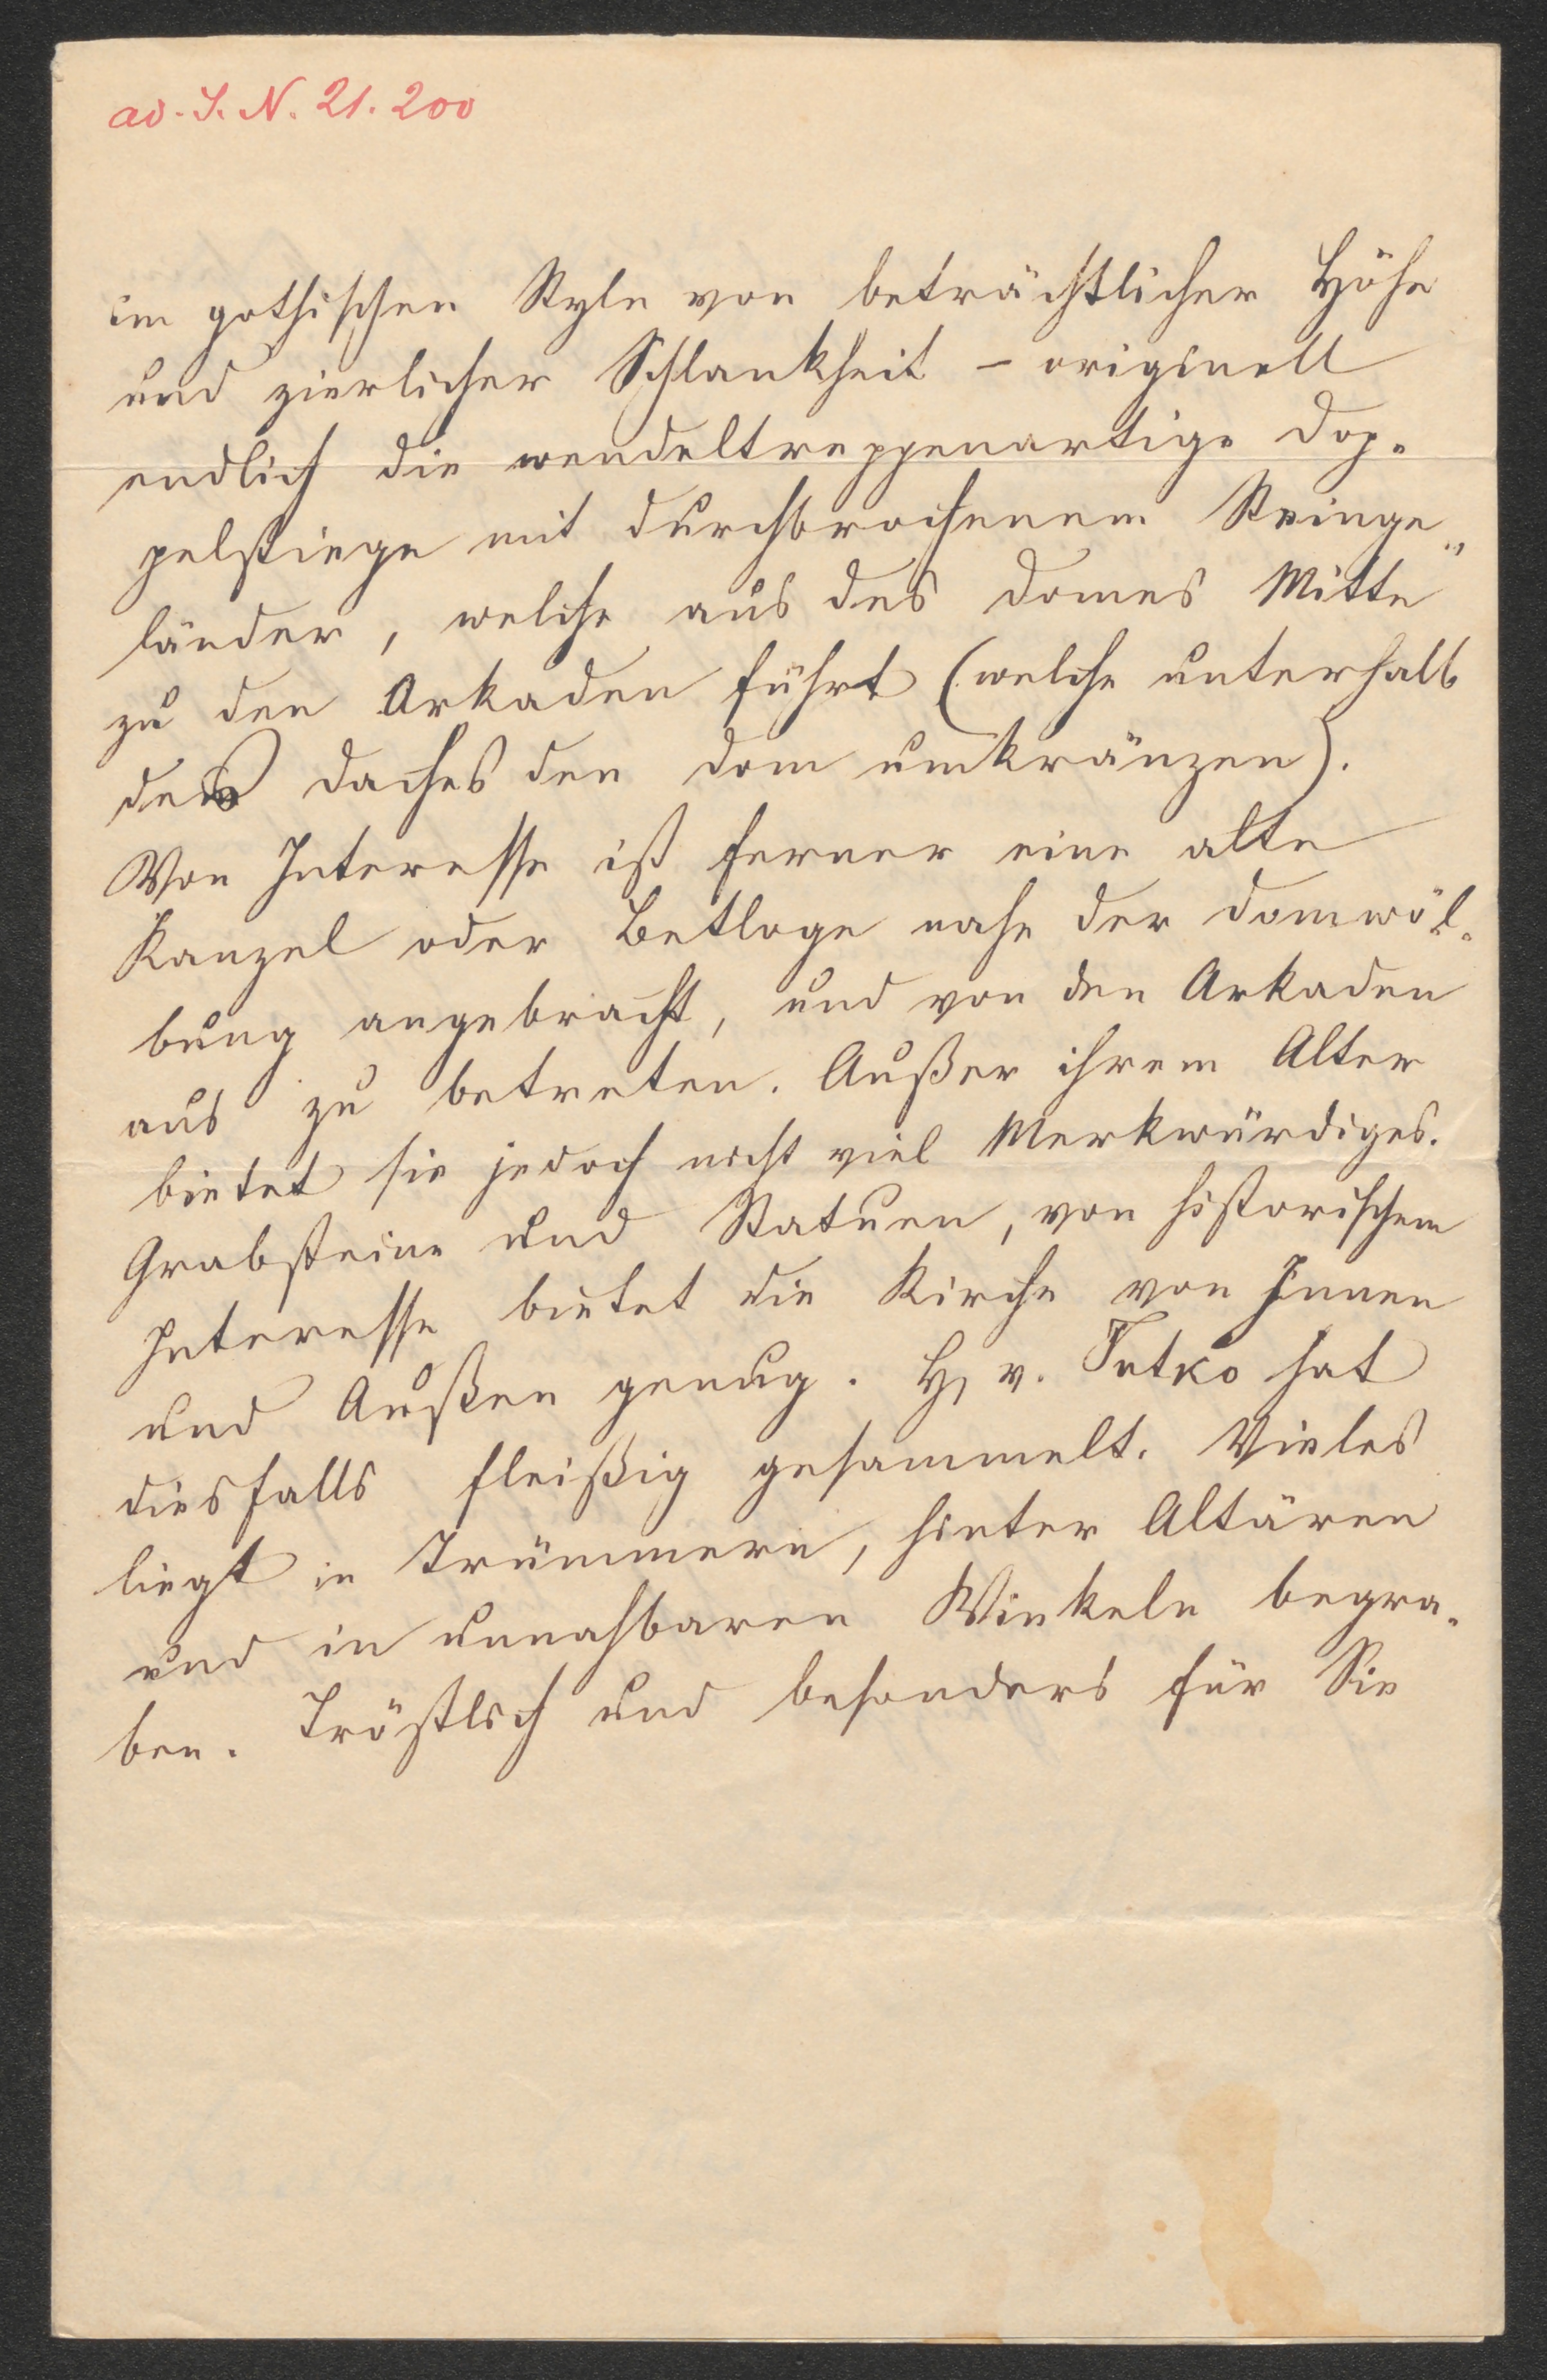 ad. I. N. 21.200
im gothischen Style von beträchtlicher Höhe
und zierlicher Schlankheit – originell
endlich die wendeltreppenartige Dop-
pelstiege mit durchbrochenem Steinge-
länder, welche aus des Domes Mitte
zu den Arkaden führt (welche unterhalb
des Daches den Dom umkränzen).
Von Interesse ist ferner eine alte
Kanzel oder Betloge nahe der Domwöl-
bung angebracht, und von den Arkaden
aus zu betreten. Außer ihrem Alter
bietet sie jedoch nicht viel Merkwürdiges.
Grabsteine und Statuen, von historischem
Interesse bietet die Kirche von Innen
und Außen genug. H. v. Tutko hat
diesfalls fleißig gesammelt. Vieles
liegt in Trümmern, hinter Altären
und in unnahbaren Winkeln begra-
ben. Tröstlich und besonders für Sie